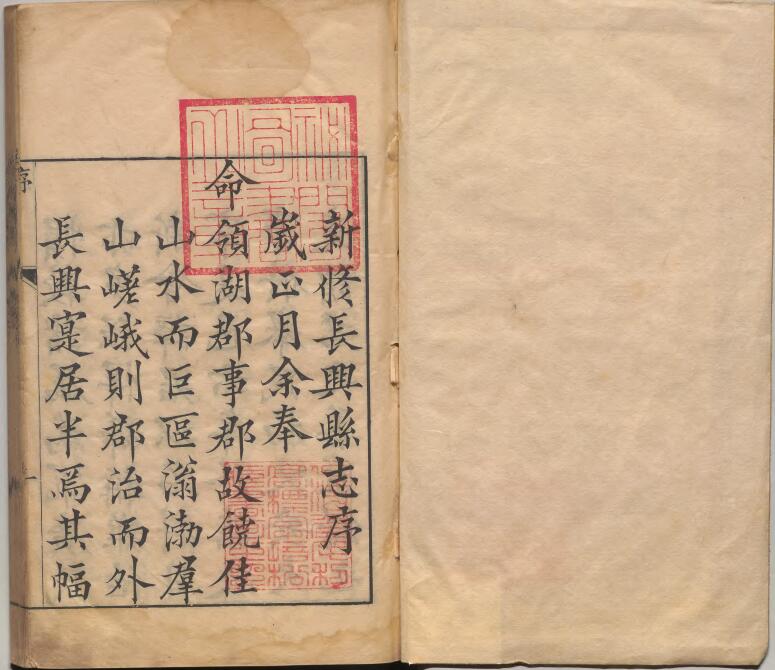 新修長興縣志序
歲正月余奉
命領湖郡事郡故饒佳
山水而巨區滃渤羣
山嵯峨則郡治而外
長興寔居半焉其幅
序